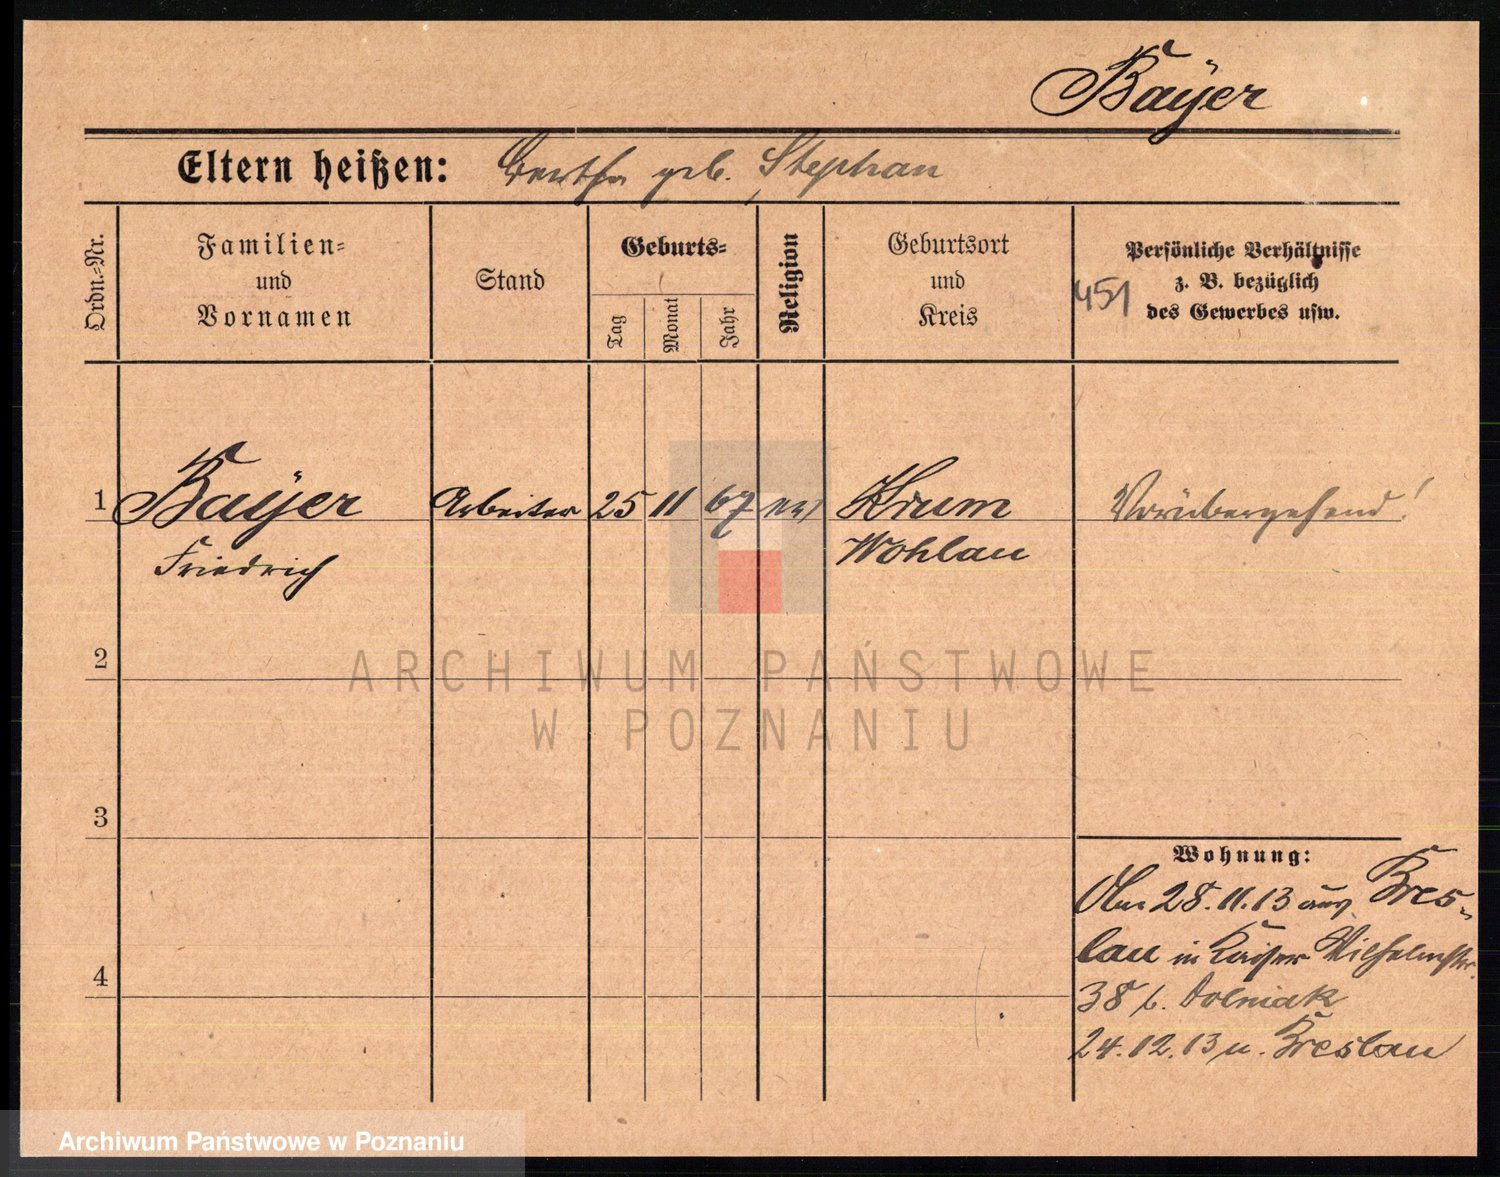 Baÿer
Eltern heißen: Bertha geb. Stephan
Ordn.=Nr.
Familien=
und
Vornamen
Stand
Geburts=
Tag
Monat
Jahr
Religion
Geburtsort
und
Kreis
Persönliche Verhältnisse
z. B. bezüglich
des Gewerbes usw.
451
1 Baÿer Arbeiter 25 11 67 ev Krum Vorübergehend!
Friedrich Wohlau
2
3
4
Wohnung:
Am 28.11.13 aus Bres-
lau in Kaiser Wilhelmstr.
38 b. Dolniak
24.12.13 n. Breslau
ARCHIWUM PAŃSTWOWE
W POZNANIU
Archiwum Państwowe w Poznaniu